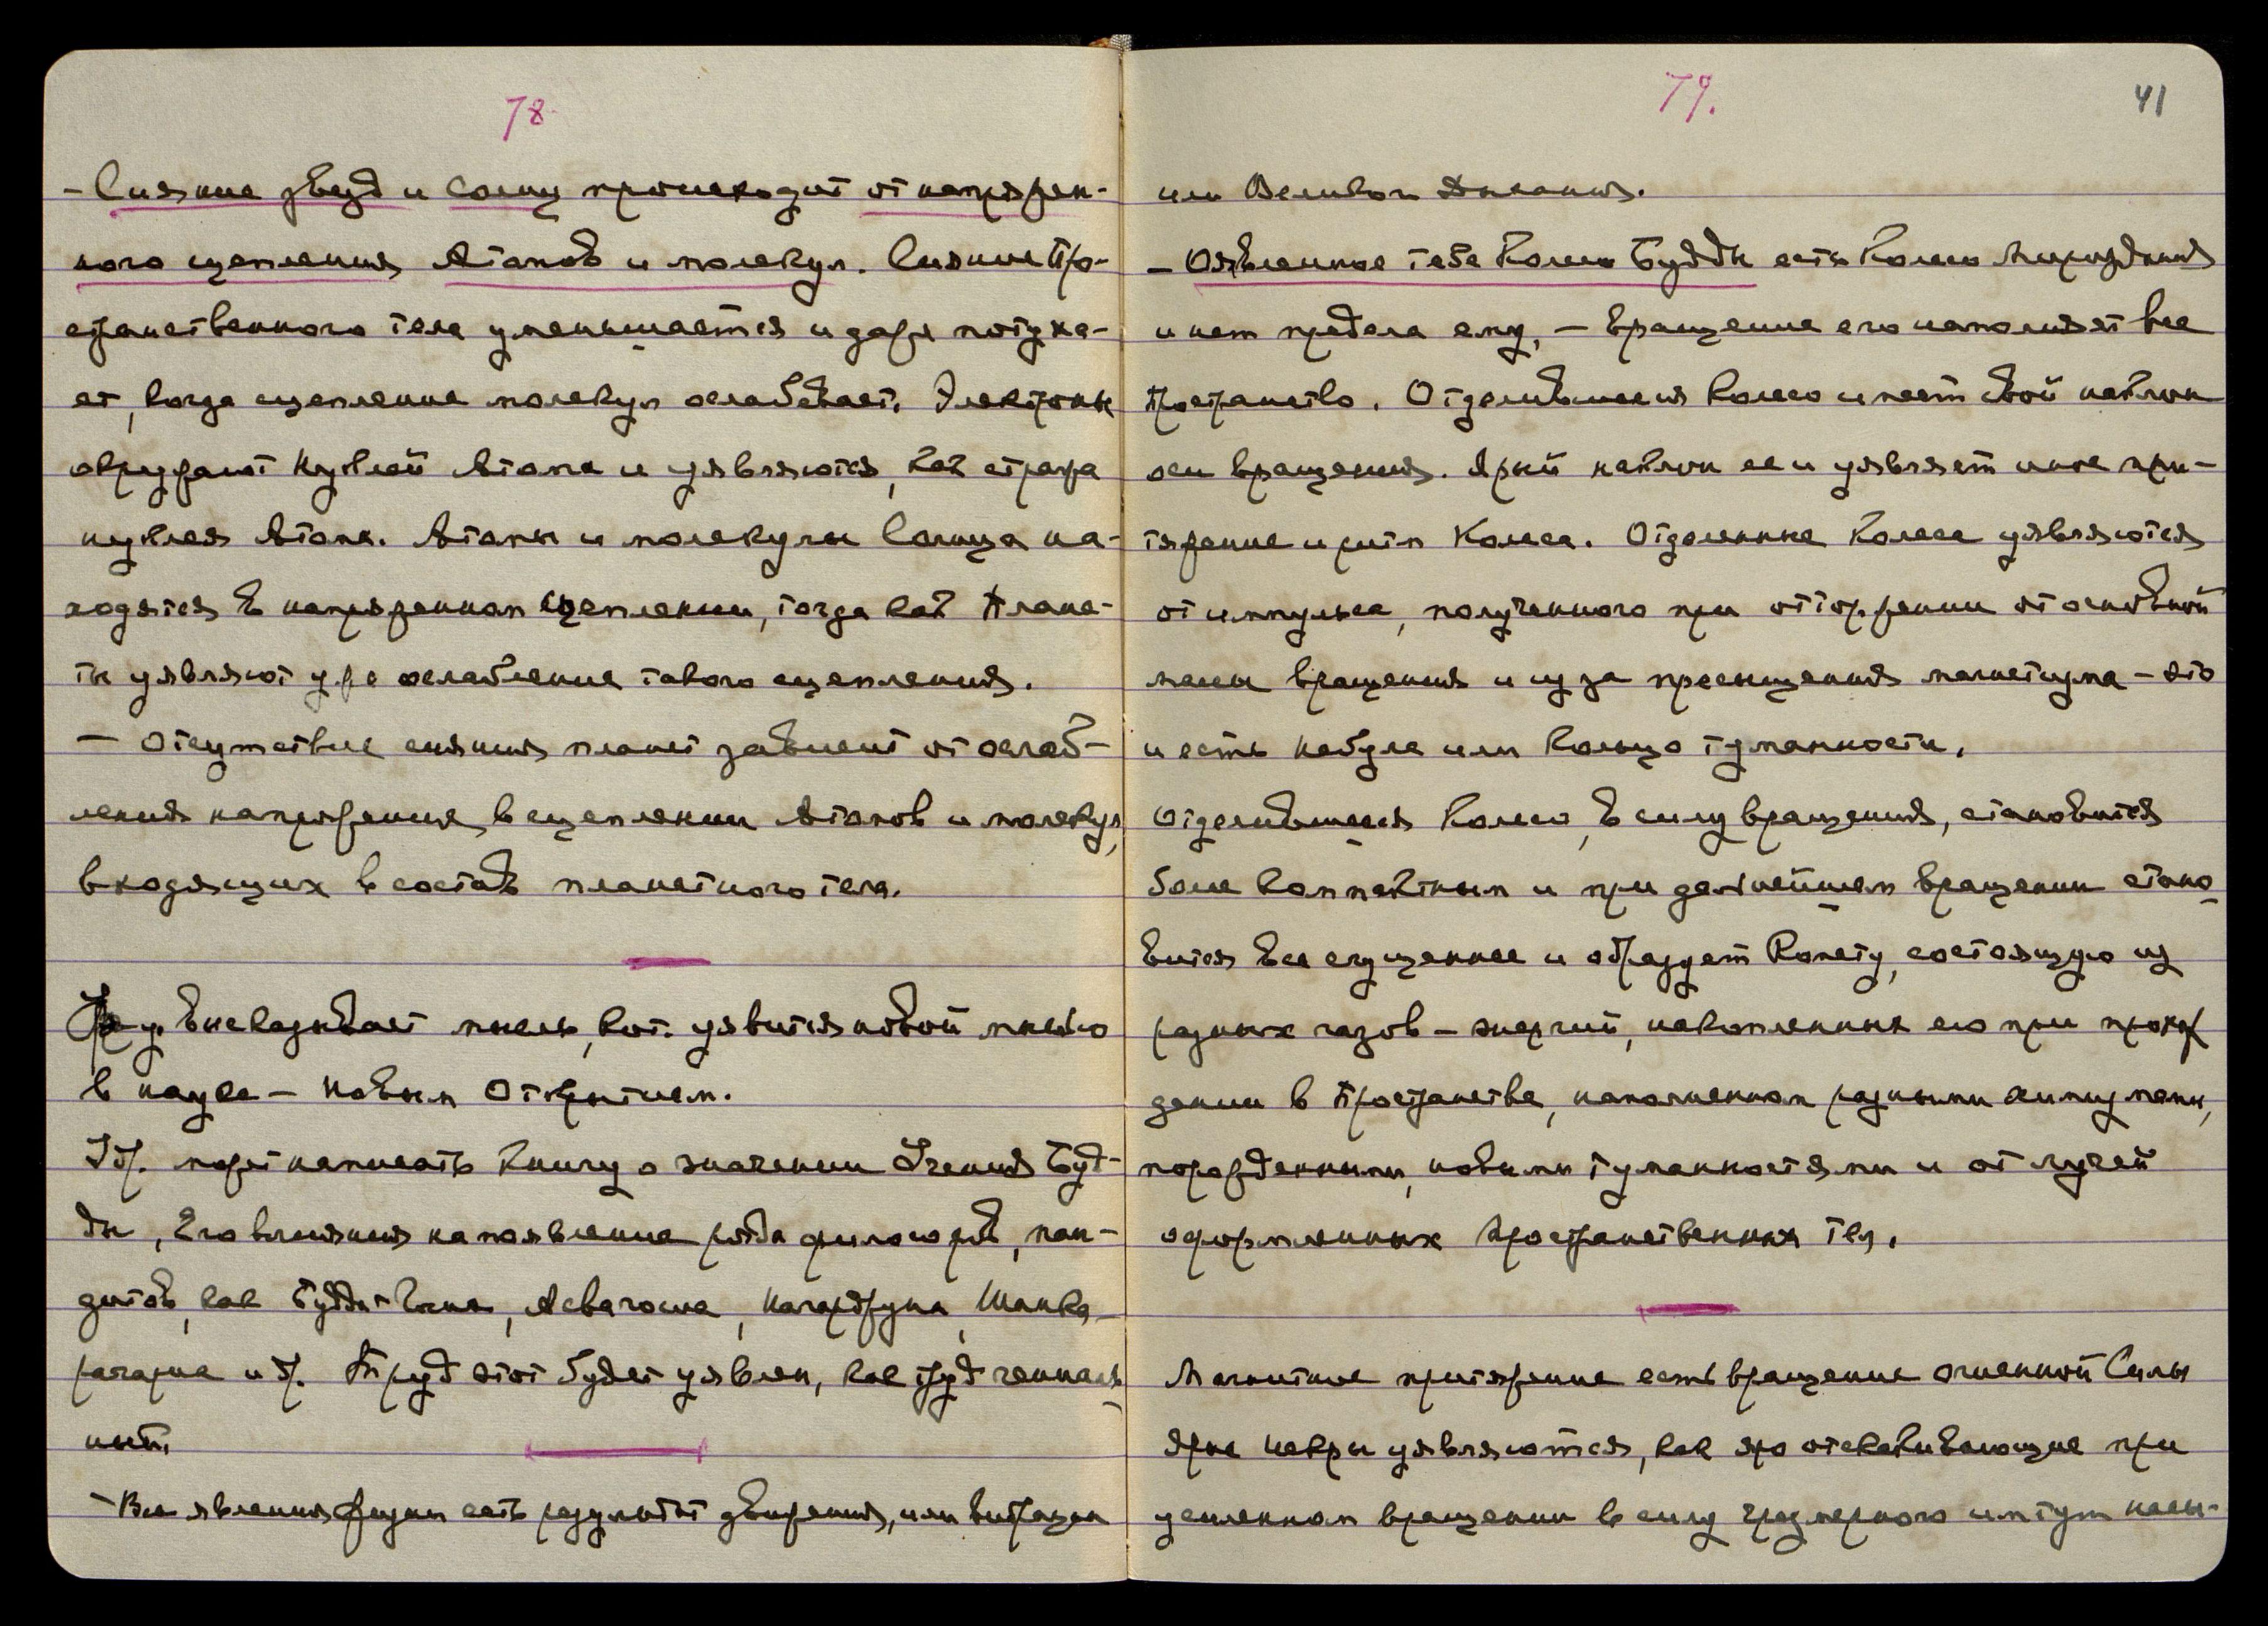 78
- Сияние звезд и Солнц происходит от напряжен-
ного сцепления Атомов и молекул. Сияние Про-
странственного тела уменьшается и даже потуха-
ет, когда сцепление молекул ослабевает. Электроны
окружают Нуклей Атома и уявляются, как стража
нуклея Атома. Атомы и молекулы Солнца на-
ходятся в напряженном сцеплении, тогда как Плане-
ты уявляют уже ослабление такого сцепления.
- Отсутствие сияния планет зависит от ослаб-
ления напряжения в сцеплении Атомов и молекул,
входящих в состав планетного тела.
высказывает мысль, кот. уявится новой мыслью
в науке - Новым Открытием.
может написать книгу о значении Учения Буд-
ды, Его влияния на появление ряда философов, пан-
дитов, как Асвагоша, Нагарджуна, Шанка-
рачариа и др. Труд этот будет уявлен, как труд
- Все явления физич есть результат движения, или вибрации
79.
41
или Великого Дыхания.
- Оявленное тебе Колесо Будды есть Колесо Мироздания
и нет предела ему, - вращение его наполняет все
Пространство. Отделившееся Колесо имеет свой наклон
оси вращения. Ярый наклон ее и уявляет иное при-
тяжение и ритм Колеса. Отдаленные Колеса уявляются
от импульса, полученного при отторжении от основной
массы вращения и из за пресыщения магнетизма - это
и есть Небула или Кольцо туманности.
Отделившееся Колесо, в силу вращения, становится
более компактным и при дальнейшем вращении стано-
вится все сгущеннее и образует Комету, состоящую из
разных газов - энергий, накопленных ею при прохож-
дении в Пространстве, наполненном разными
порожденными новыми туманностями и от лучей
оформленных пространственных тел.
Магнитное притяжение есть вращение огненной Силы
Ярые искры уявляются, как яро отскакивающие при
усиленном вращении в силу чрезмерного импульса